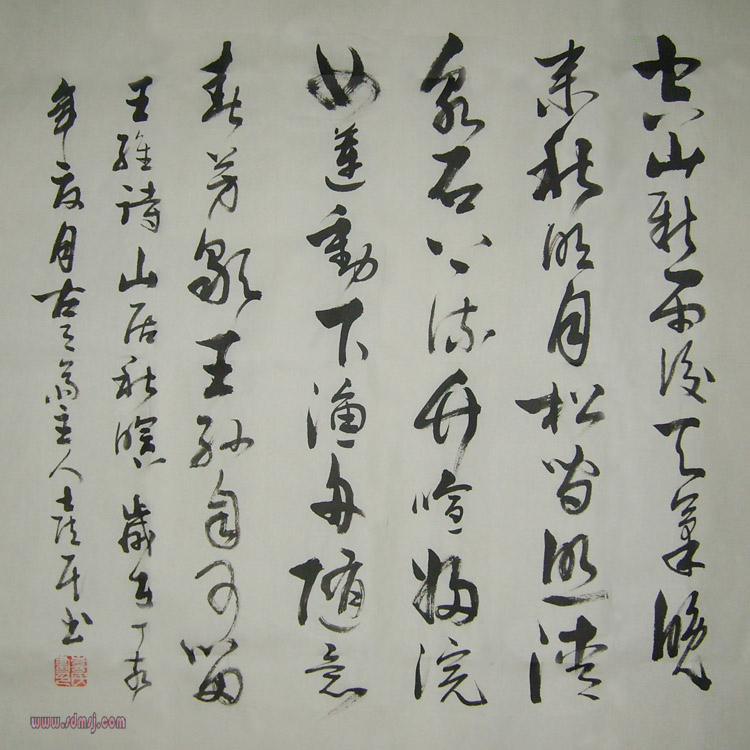 空山新雨後天氣晚
来秋明月松间照清
泉石上流竹喧归浣
女莲動下渔舟随意
春芳歇王孙自可留
王维诗山居秋暝岁在丁亥
年夏月古斋主人书
www.sdmsj.com